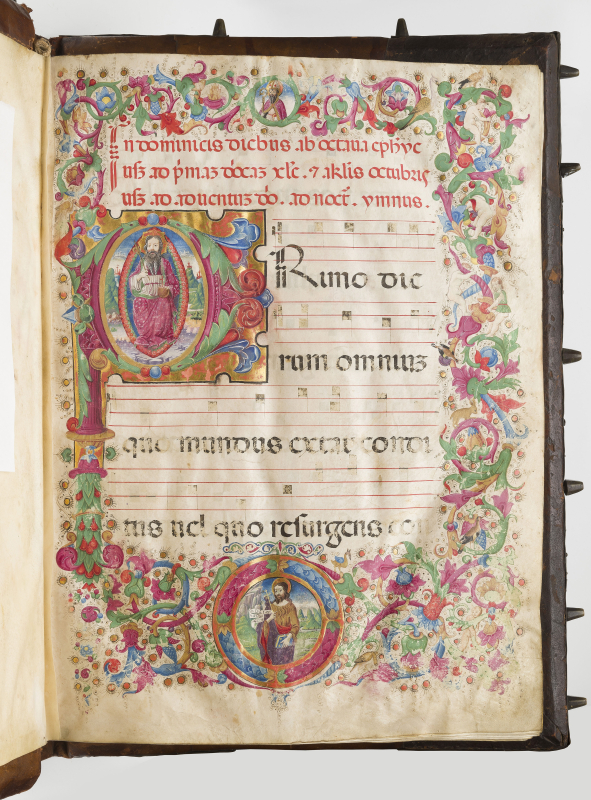 In dominicis diebus ab octaua ephyc
usqz ad p̄maz d̄o̅caz xlc̅. & akl̄is octubris
usqz ad aduentuz d̄o̅. ad noct̄. ymnus.
PRimo die
rum omniuz
quo mundus extat condi
tus uel quo resurgens con